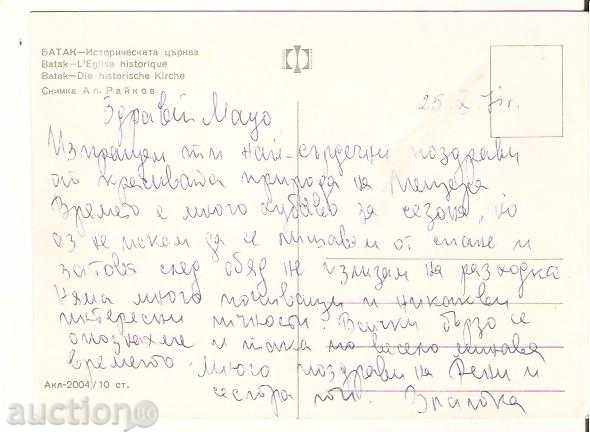 БАТАК—Историческата църква
Batak—L'Eglise historique
Batak—Die historische Kirche
Снимка Ал. Райков
25 X 71г.
Здравей Мацо
Изпращам ти най-сърдечни поздрави
от красивата природа на
Времето е много хубаво за сезона, но
аз не искам да се лишавам от спане и
затова след обяд не излизам на разходка
Няма много почиващи и никакви
интересни личности. Всички бързо се
опознахме и така по весело минава
времето. Много поздрави на Дени и
сестра ти.
Акл-2004/10 ст.
auction.bg